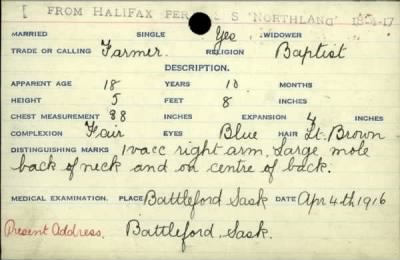 FROM HALIFAX PER S S "NORTHLAND" 18-4-17
MARRIED SINGLE Yes WIDOWER
TRADE OR CALLING Farmer. RELIGION Baptist
DESCRIPTION.
APPARENT AGE 18 YEARS 10 MONTHS
HEIGHT 5 FEET 8 INCHES
CHEST MEASUREMENT 38 INCHES EXPANSION 4 INCHES
COMPLEXION Fair EYES Blue HAIR Lt. Brown
DISTINGUISHING MARKS 1 vacc right arm, Large mole
back of neck and on centre of back.
MEDICAL EXAMINATION. PLACE Battleford Sask DATE Apr 4th 1916
Present Address. Battleford, Sask.